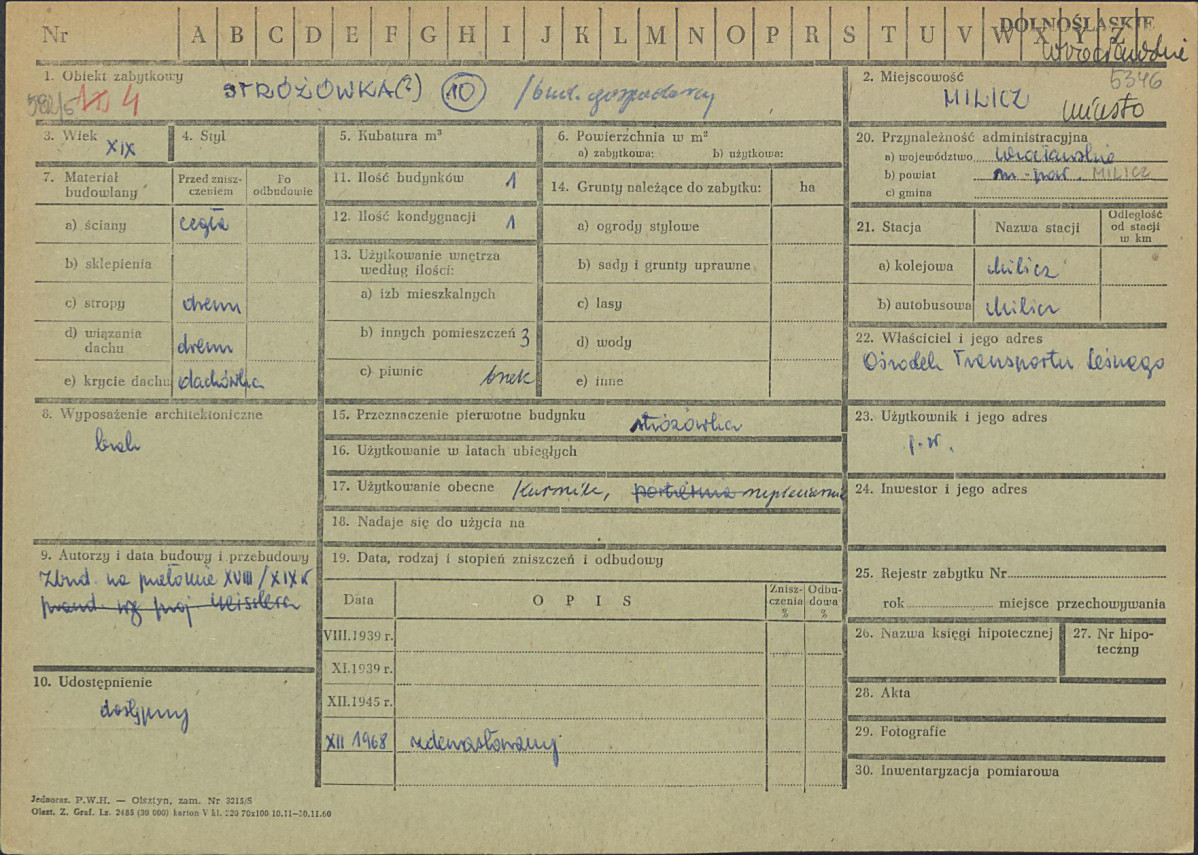 Nr A B C D E F G H I J K L M N O P R S T U V W X Y Z DOLNOŚLĄSKIE
wrocławskie
1. Obiekt zabytkowy
STRÓŻÓWKA(?) 10 /bud. gospodarczy
582/6 4
2. Miejscowość 5346
MILICZ
miasto
3. Wiek
XIX
4. Styl
5. Kubatura m³
6. Powierzchnia w m²
a) zabytkowa: b) użytkowa:
20. Przynależność administracyjna
a) województwo wrocławskie
b) powiat m-pow. MILICZ
c) gmina
7. Materiał budowlany
Przed zniszczeniem
Po odbudowie
a) ściany cegła
b) sklepienia
c) stropy drewn
d) wiązania dachu drewn
e) krycie dachu dachówka
11. Ilość budynków 1
12. Ilość kondygnacji 1
13. Użytkowanie wnętrza
według ilości:
a) izb mieszkalnych
b) innych pomieszczeń 3
c) piwnic brak
14. Grunty należące do zabytku: ha
a) ogrody stylowe
b) sady i grunty uprawne
c) lasy
d) wody
e) inne
21. Stacja
Nazwa stacji
Odległość od stacji w km
a) kolejowa Milicz
b) autobusowa Milicz
22. Właściciel i jego adres
Ośrodek Transportu Leśnego
8. Wyposażenie architektoniczne
brak
15. Przeznaczenie pierwotne budynku stróżówka
16. Użytkowanie w latach ubiegłych
17. Użytkowanie obecne Kurnik,
18. Nadaje się do użycia na
23. Użytkownik i jego adres
j. w.
24. Inwestor i jego adres
9. Autorzy i data budowy i przebudowy
Zbud. na przełomie XVIII/XIX w
prawd. wg proj Geisslera
19. Data, rodzaj i stopień zniszczeń i odbudowy
Data
O P I S
Zniszczenia %
Odbudowa %
VIII.1939 r.
XI.1939 r.
XII.1945 r.
XII 1968 zdewastowany
25. Rejestr zabytku Nr
rok miejsce przechowywania
26. Nazwa księgi hipotecznej
27. Nr hipoteczny
10. Udostępnienie
dostępny
28. Akta
29. Fotografie
30. Inwentaryzacja pomiarowa
Jednoraz. P.W.H. — Olsztyn, zam. Nr 3215/S
Olszt. Z. Graf. Lz. 2485 (30 000) karton V kl. 220 70x100 10.11—30.11.60